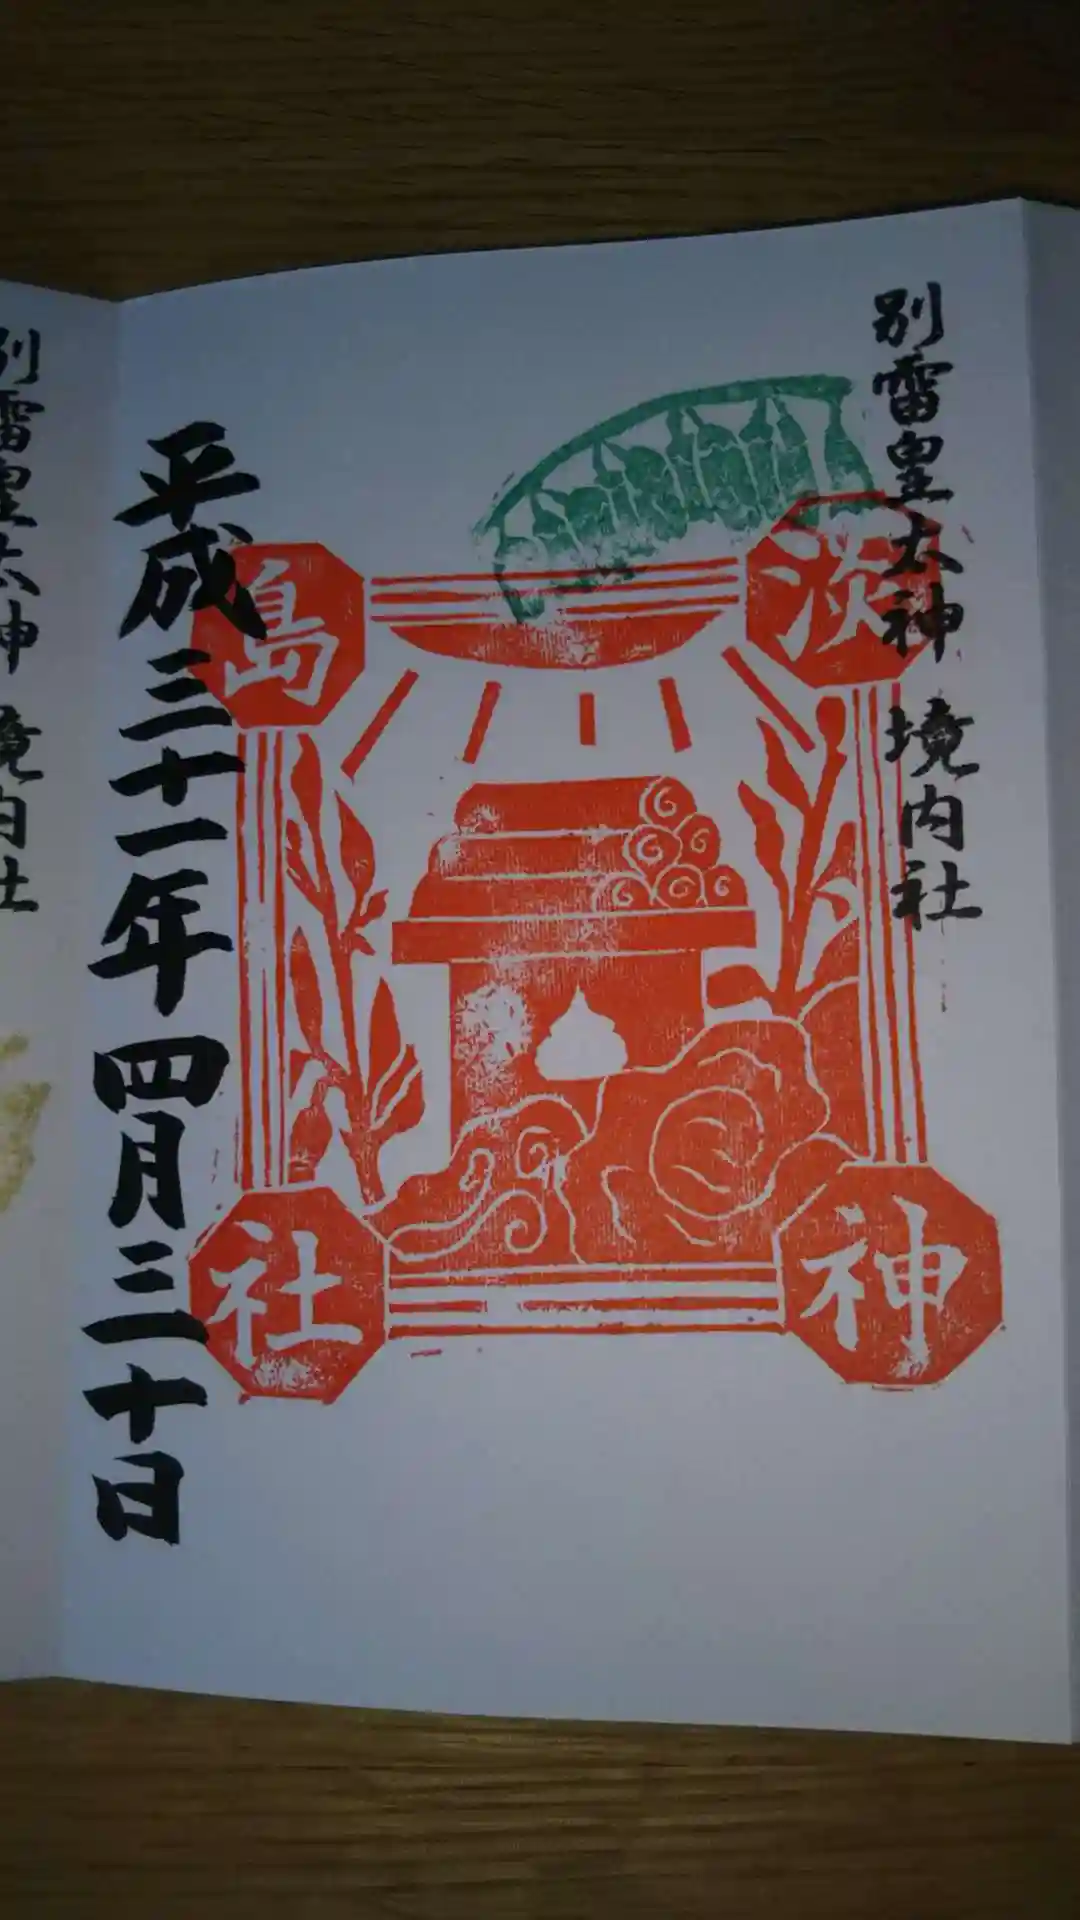 別雷皇太神 境内社
淡島神社
平成三十一年四月三十日
別雷皇太神 境内社